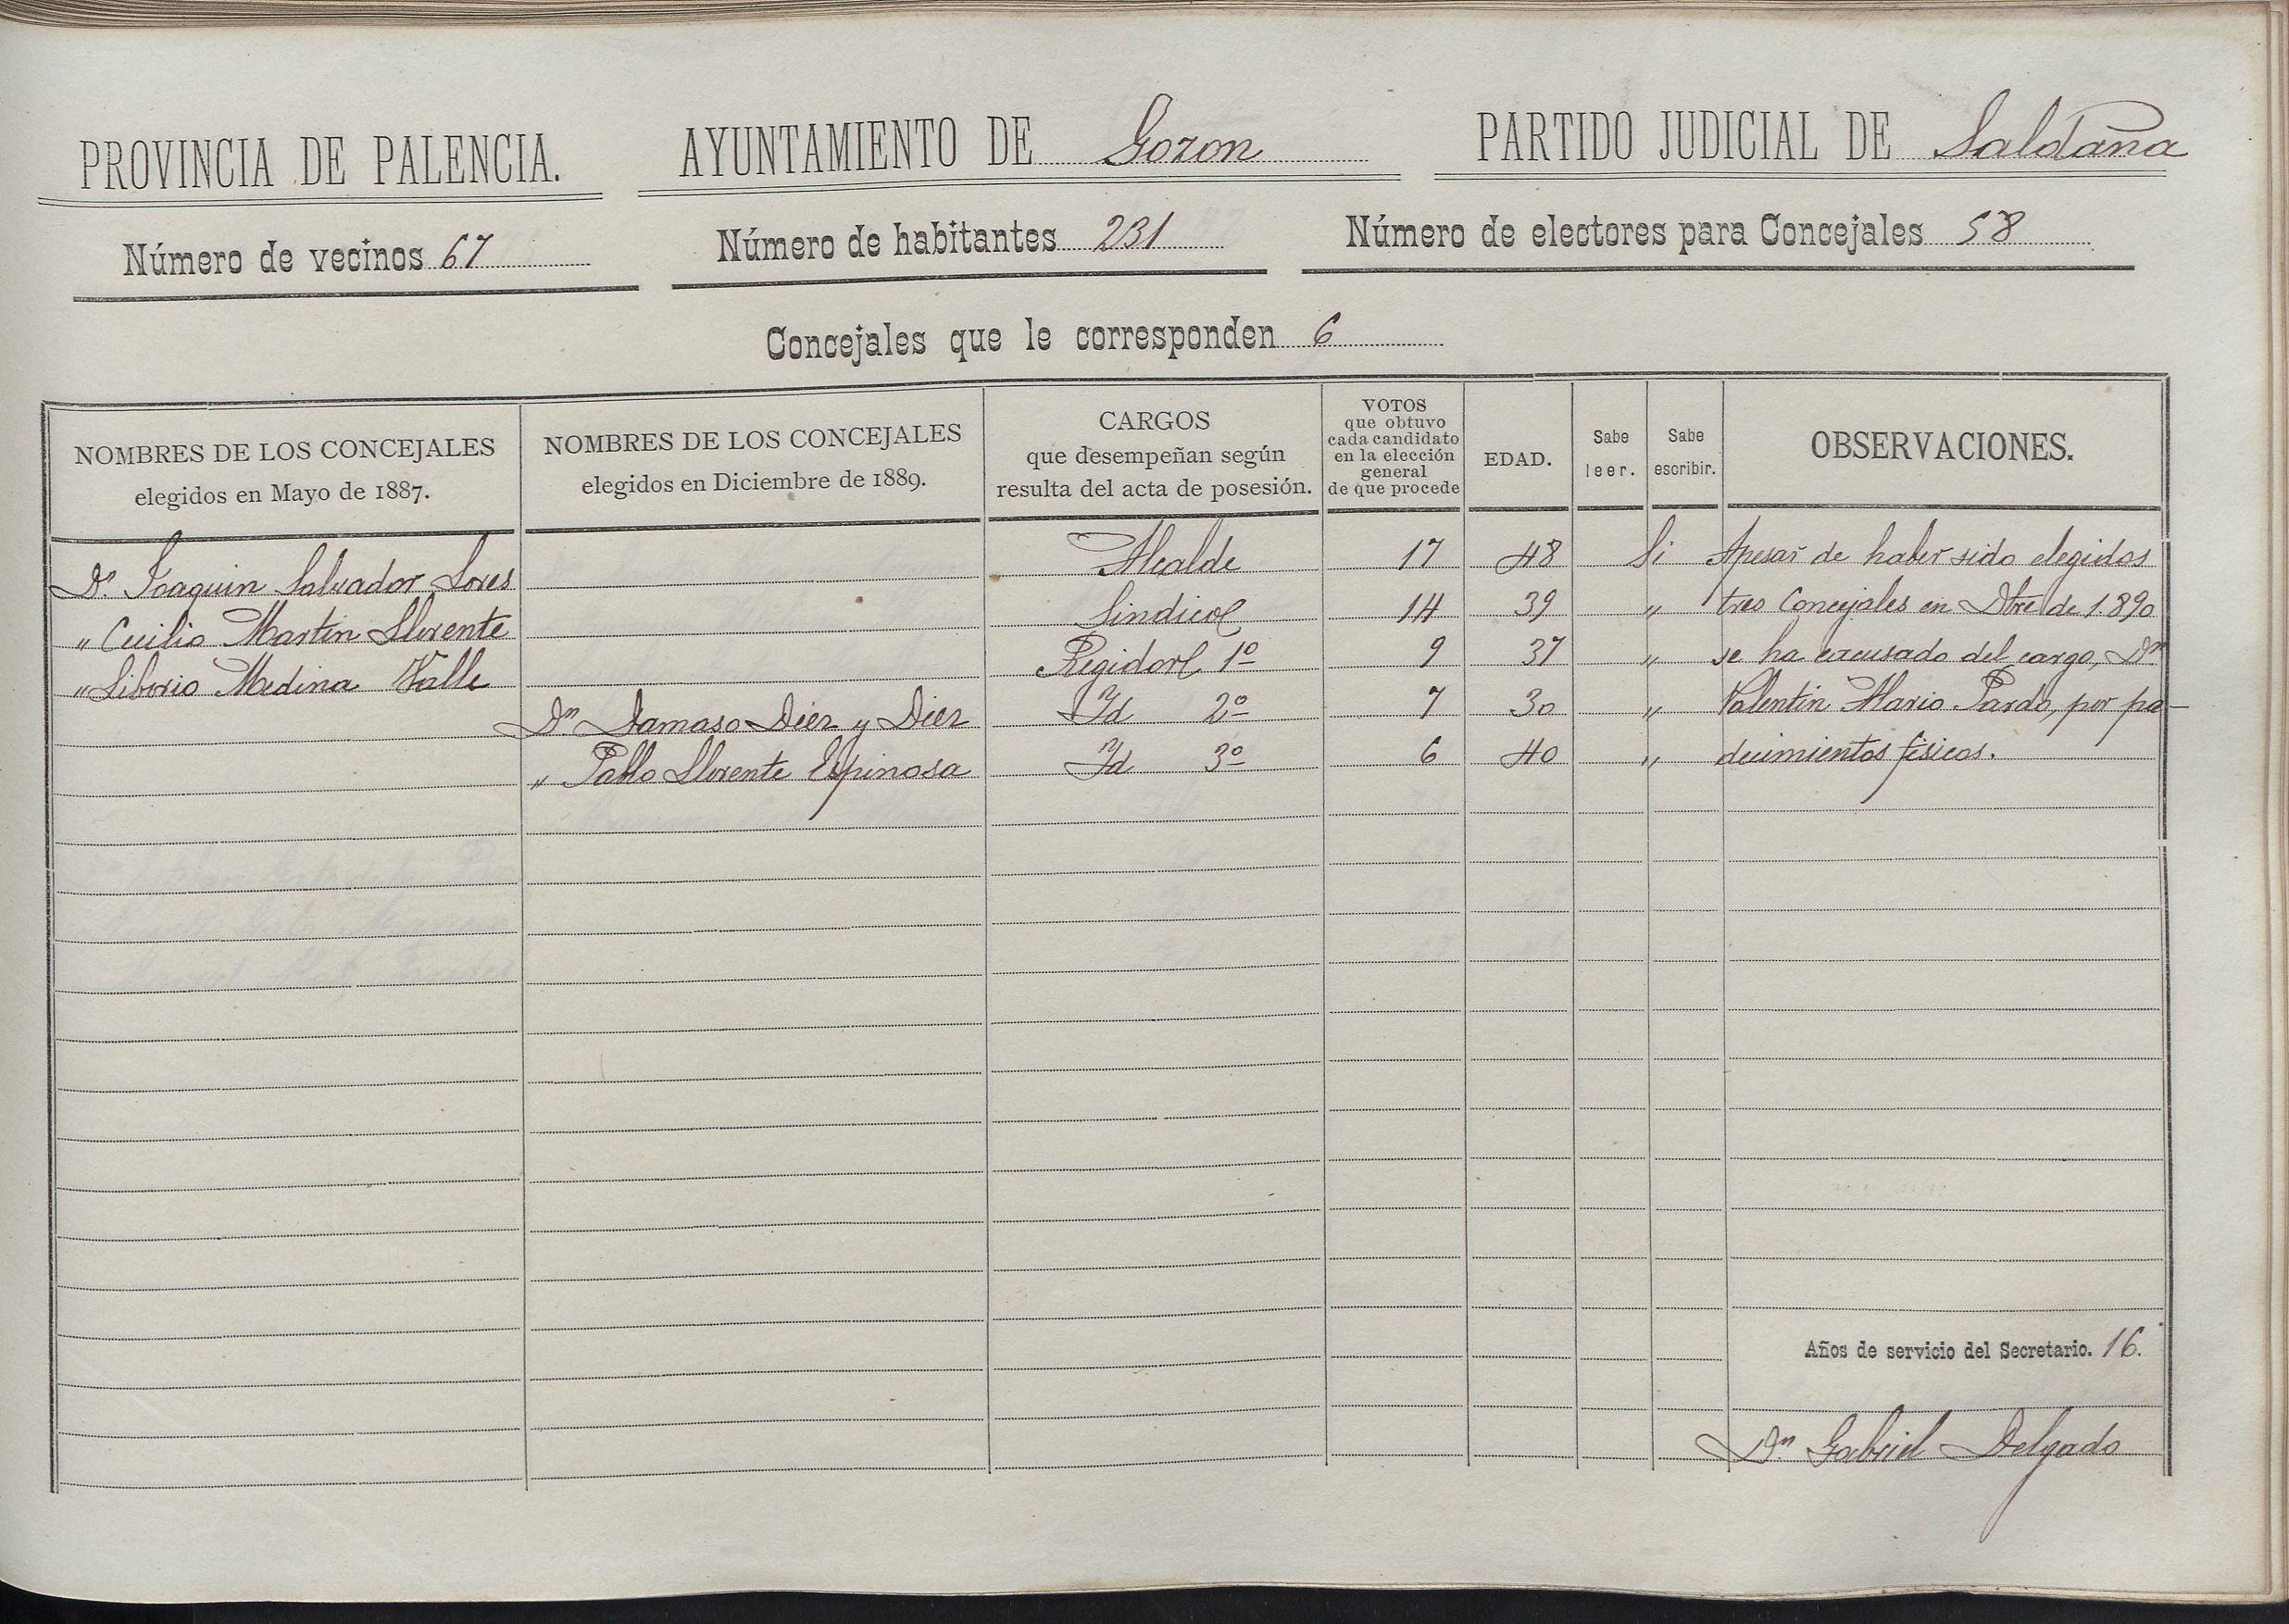 PROVINCIA DE PALENCIA. AYUNTAMIENTO DE Gozon PARTIDO JUDICIAL DE Saldaña
Número de vecinos 67 Número de habitantes 231 Número de electores para Concejales 58
Concejales que le corresponden 6
NOMBRES DE LOS CONCEJALES
elegidos en Mayo de 1887.
NOMBRES DE LOS CONCEJALES
elegidos en Diciembre de 1889.
CARGOS
que desempeñan según
resulta del acta de posesión.
VOTOS
que obtuvo
cada candidato
en la elección
general
de que procede
EDAD.
Sabe
leer.
Sabe
escribir.
OBSERVACIONES.
Dn. Joaquin Salvador Lores Alcalde 17 48 Si Apesar de haber sido elegidos
" Cecilio Martin Llorente Sindico 14 39 " tres Concejales en Dbre de 1.890
" Liborio Medina Valle Regidor 1º 9 37 " se ha excusado del cargo, Dn
Dn Damaso Diez y Diez Id 2º 7 30 " Valentin Mario Pardo, por pa-
" Pablo Llorente Espinosa Id 3º 6 40 " decimientos fisicos.
Años de servicio del Secretario. 16.
Dn. Gabriel Delgado